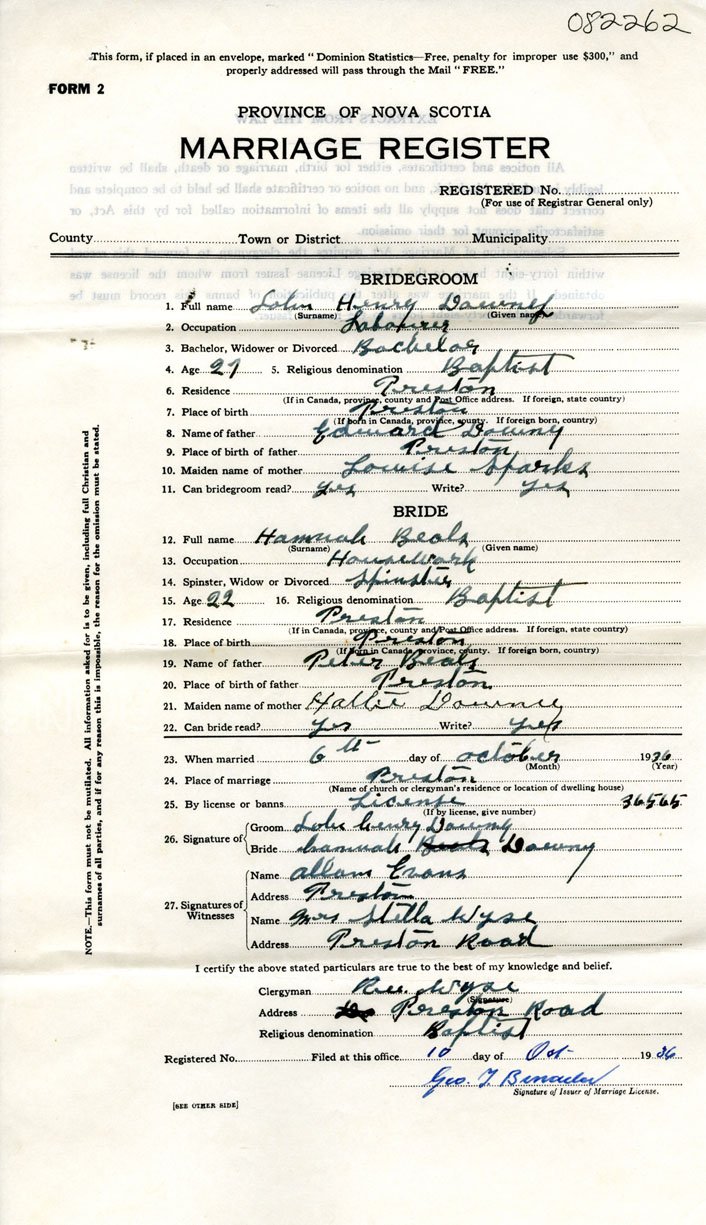 082262
This form, if placed in an envelope, marked "Dominion Statistics—Free, penalty for improper use $300," and
properly addressed will pass through the Mail "FREE."
FORM 2
PROVINCE OF NOVA SCOTIA
MARRIAGE REGISTER
REGISTERED No.
(For use of Registrar General only)
County Town or District Municipality
BRIDEGROOM
1. Full name John Henry Downey
(Surname) (Given name)
2. Occupation Labourer
3. Bachelor, Widower or Divorced Bachelor
4. Age 27 5. Religious denomination Baptist
6. Residence Preston
(If in Canada, province, county and Post Office address. If foreign, state country)
7. Place of birth Preston
(If born in Canada, province, county. If foreign born, country)
8. Name of father Edward Downy
9. Place of birth of father Preston
10. Maiden name of mother Louise Sparks
11. Can bridegroom read? yes Write? yes
BRIDE
12. Full name Hannah Beals
(Surname) (Given name)
13. Occupation Housework
14. Spinster, Widow or Divorced Spinster
15. Age 22 16. Religious denomination Baptist
17. Residence Preston
(If in Canada, province, county and Post Office address. If foreign, state country)
18. Place of birth Preston
(If born in Canada, province, county. If foreign born, country)
19. Name of father Peter Beals
20. Place of birth of father Preston
21. Maiden name of mother Hattie Downey
22. Can bride read? yes Write? yes
23. When married 6th day of october 1936
(Month) (Year)
24. Place of marriage Preston
(Name of church or clergyman's residence or location of dwelling house)
25. By license or banns License 36565
(If by license, give number)
26. Signature of Groom John henry Downy
Bride hannah Beals Downy
27. Signatures of Witnesses Name allan Evans
Address Preston
Name Mrs Stella Wyse
Address Preston Road
I certify the above stated particulars are true to the best of my knowledge and belief.
Clergyman Rev Wyse
(Signature)
Address Preston Road
Religious denomination Baptist
Registered No. Filed at this office 10 day of Oct 1936
Geo. T.
Signature of Issuer of Marriage License.
[SEE OTHER SIDE]
NOTE.—This form must not be mutilated. All information asked for is to be given, including full Christian and
surnames of all parties, and if for any reason this is impossible, the reason for the omission must be stated.